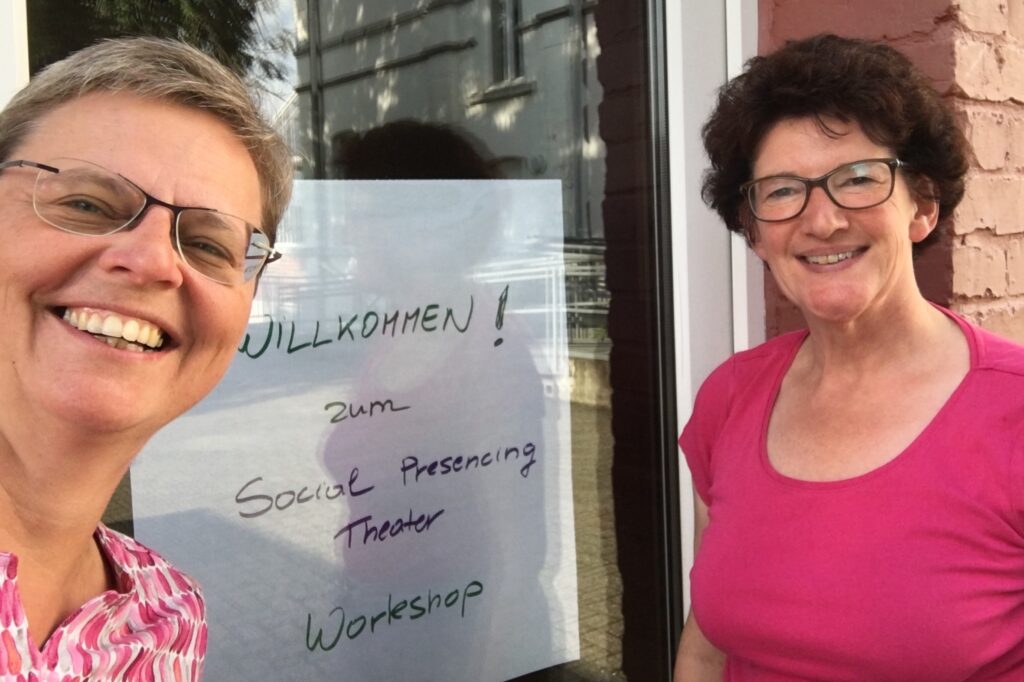 WILLKOMMEN!
zum
Social Presencing
Theater
Workshop